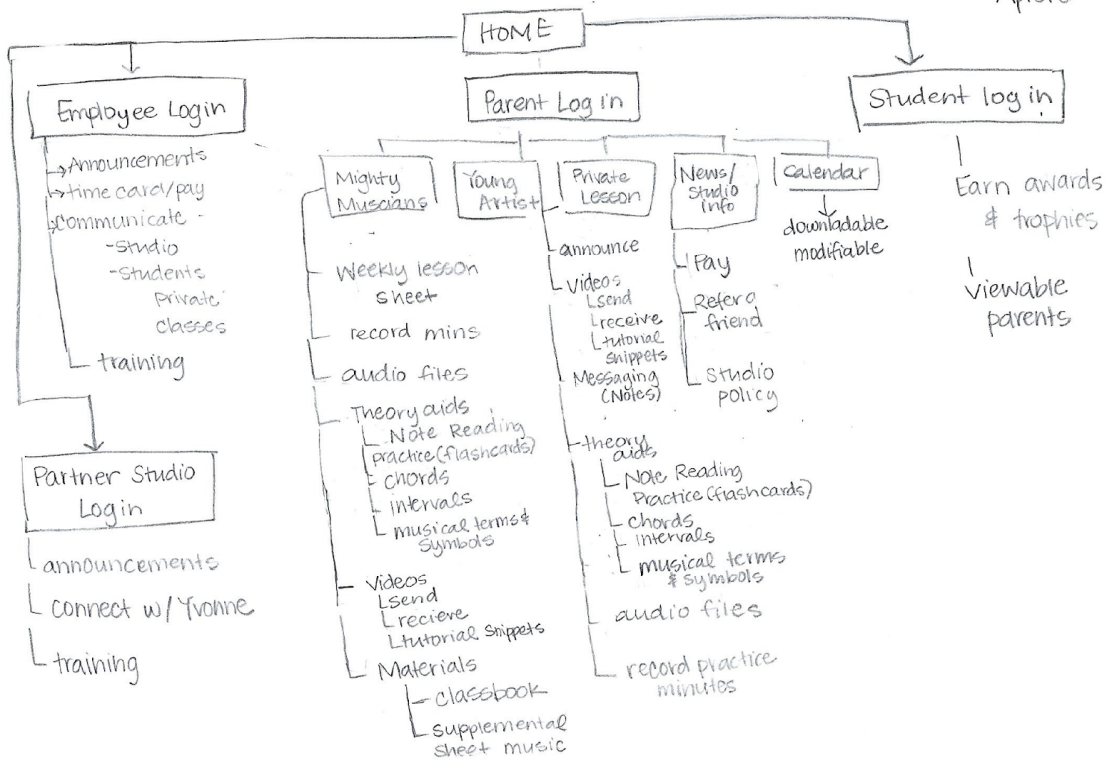 HOME
Employee Login
Announcements
time card/pay
communicate -
-Studio
-Students
private
classes
training
Partner Studio
Login
announcements
connect w/ Yvonne
training
Parent Log in
Mighty
Muscians
Weekly lesson
sheet
record mins
audio files
Theory aids
Note Reading
practice (flashcards)
chords
intervals
musical terms &
Symbols
Videos
send
recieve
tutorial snippets
Materials
classbook
supplemental
sheet music
Young
Artist
Private
Lesson
announce
videos
send
receive
tutorial
snippets
Messaging
(Notes)
theory
aids
Note Reading
Practice (flashcards)
chords
intervals
musical terms
& symbols
audio files
record practice
minutes
News/
Studio
info
Pay
Refer a
friend
Studio
policy
Calendar
downladable
modifiable
Student log in
Earn awards
& trophies
viewable
parents